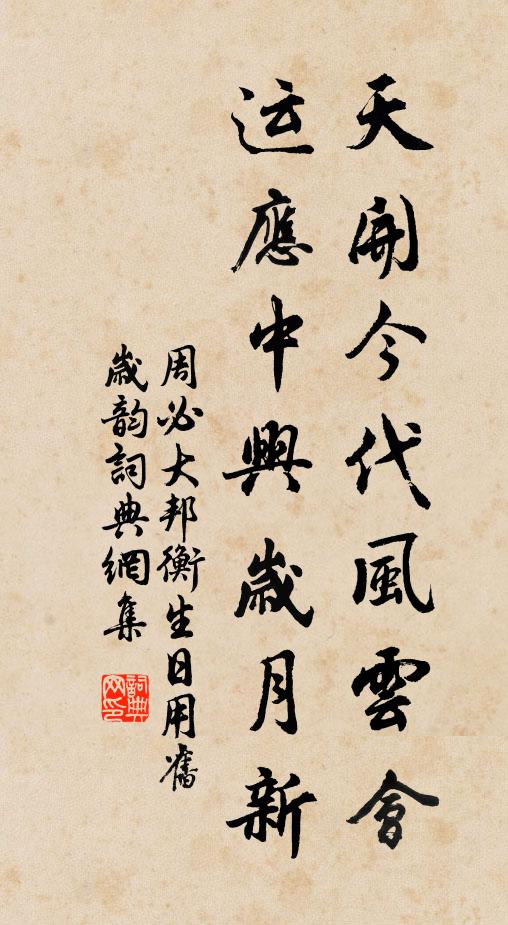 天開今代風雲會
运應中興歲月新
周必大邦衡生日用舊
歲韵詞典網集
詞典网印